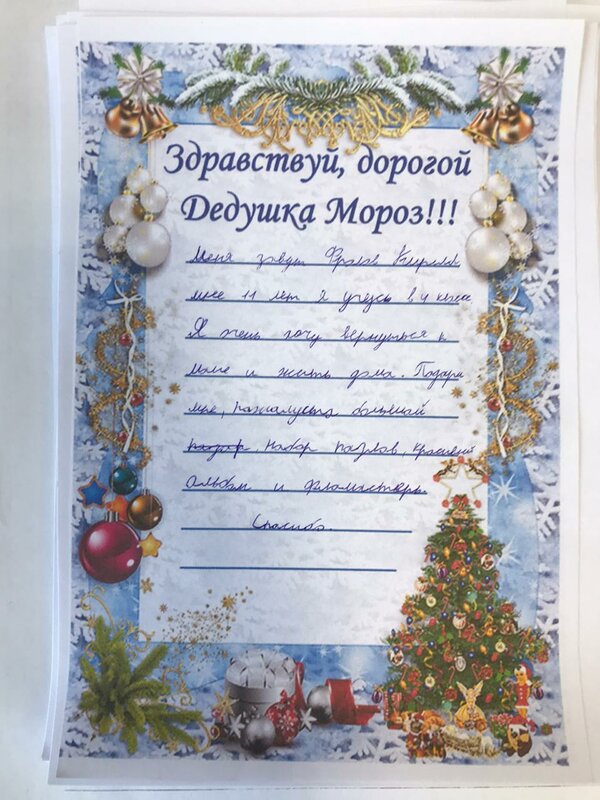 Здравствуй, дорогой
Дедушка Мороз!!!
Меня зовут Фролов Кирилл
мне 11 лет я учусь в 4 классе
Я очень хочу вернуться к
маме и жить дома. Подари
мне, пажалуста большой
набор, набор пазлов, красивый
альбом и фломастеры.
Спасибо.